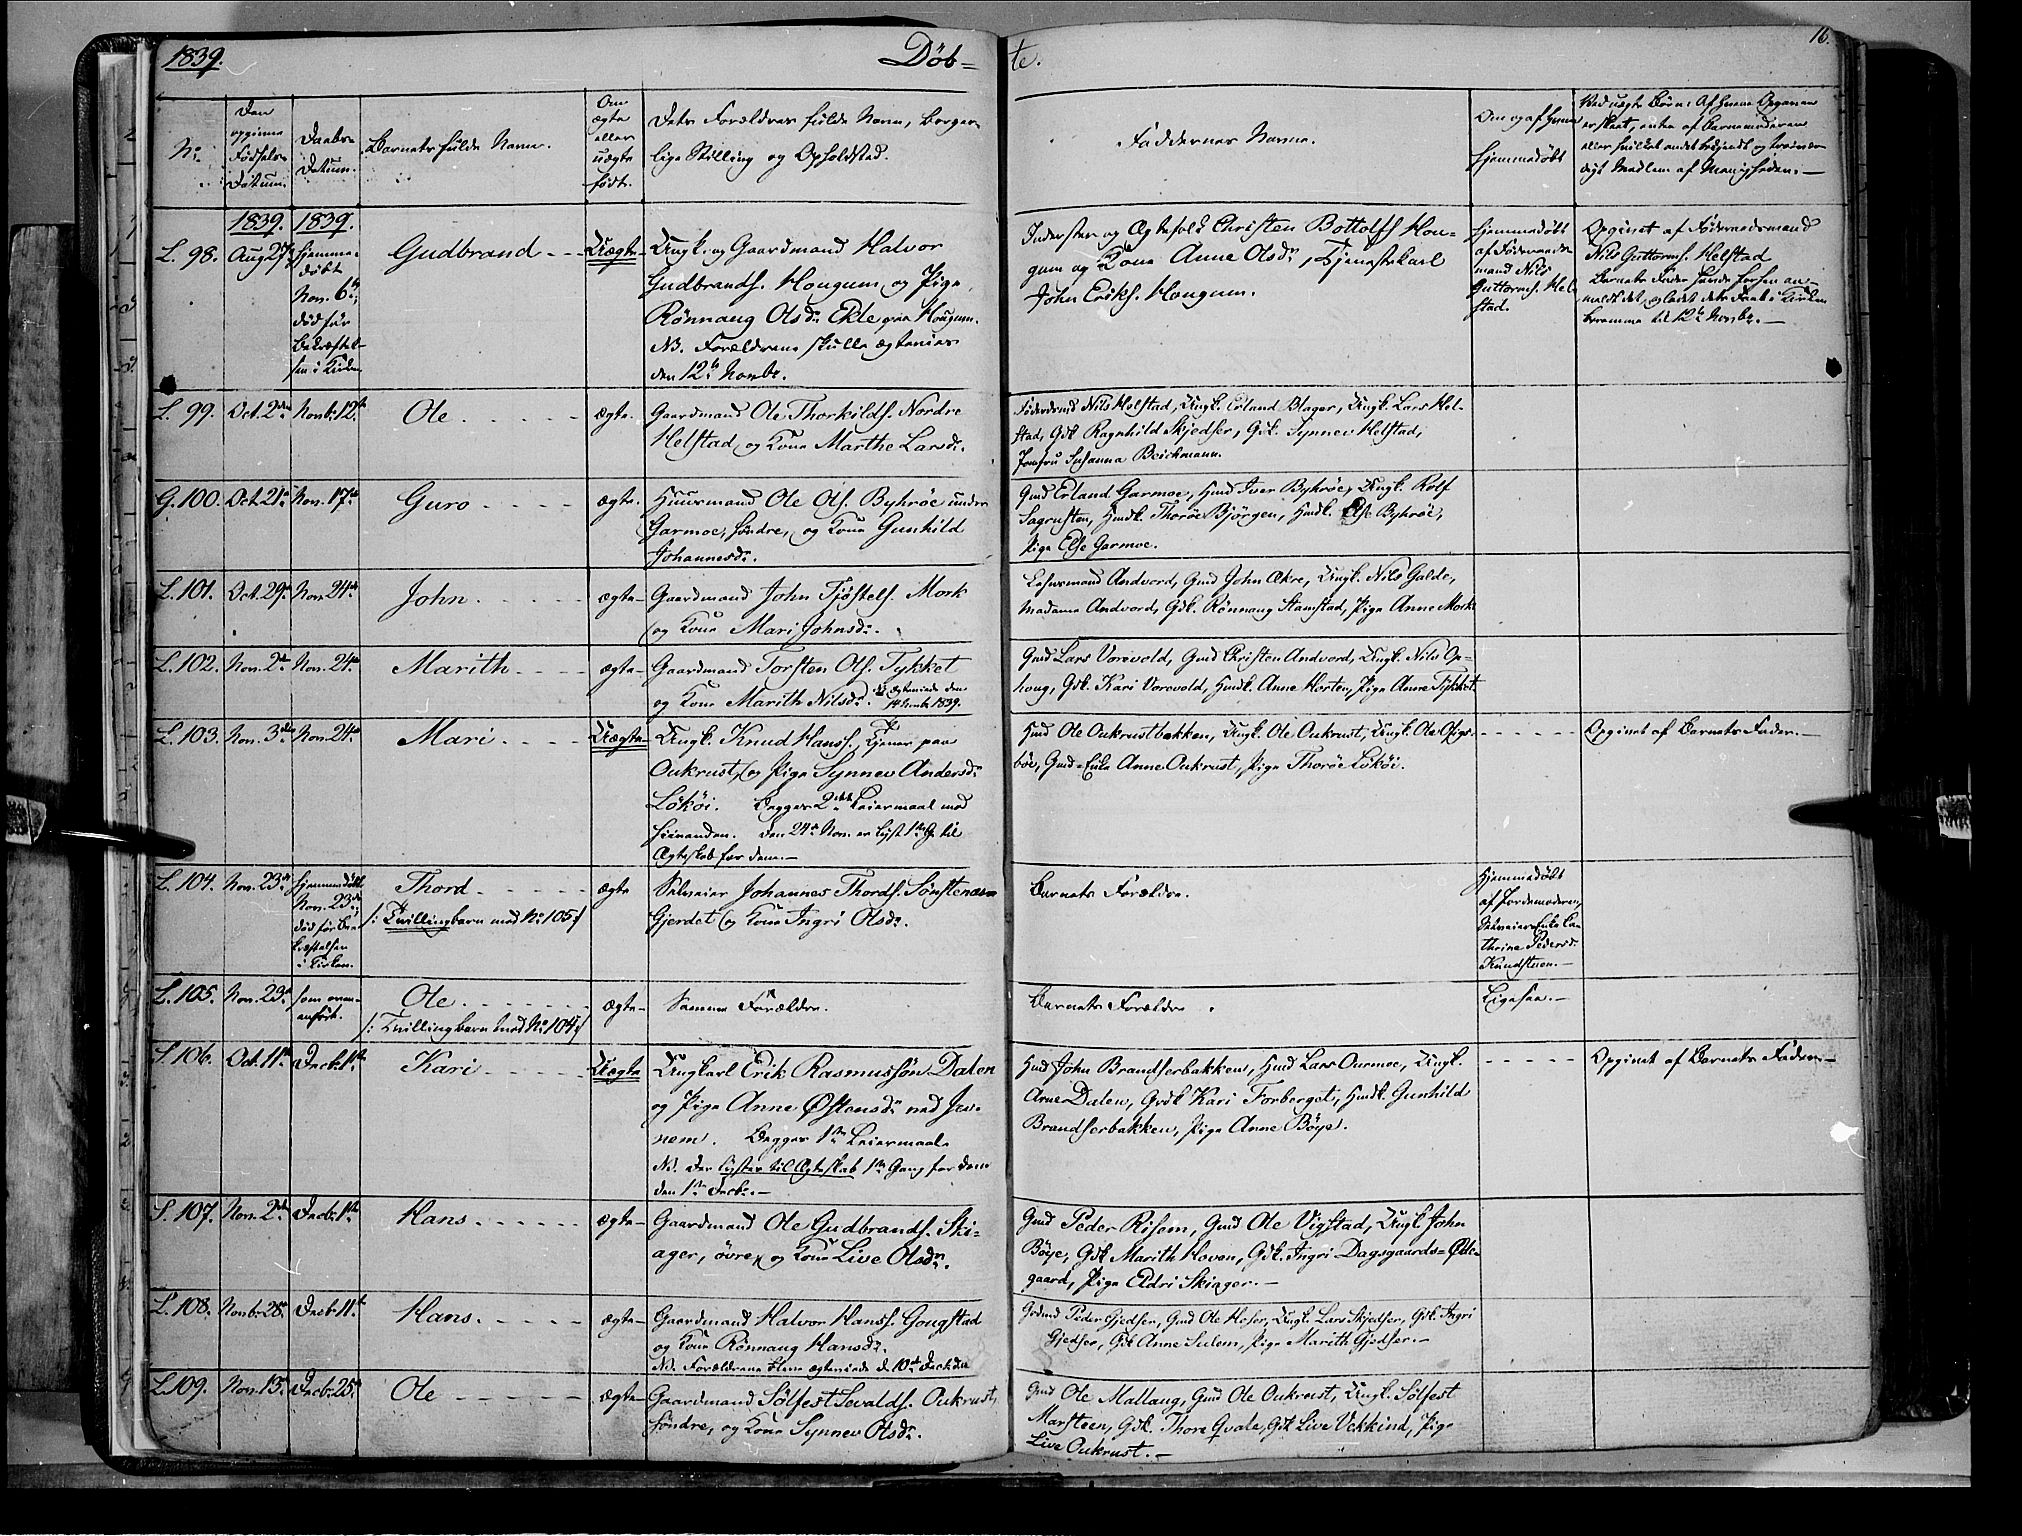 1839.
Døb=
te.
16.
No
Den opgivne Fødsels-Datum.
Daabs-Datum.
Barnets fulde Navn.
Om ægte eller uægte født.
Dets Forældres fulde Navn, Borger-
lige Stilling og Opholdsted.
Faddernes Navne.
Om og af hvem
hjemmedøbt
Ved uægte Børn: Af hvem Opgaven
er skeet, enten af Barnemoderen
eller hvilket andet bekjendt og troevær-
digt Medlem af Menigheden.—
1839. 1839.
L. 98. Aug 27de
Hjemme-
døbt
Nov. 6te,
død før
Bekræftel-
sen i Kirken
Gudbrand
Uægte
Ungk. og Gaardmand Halvor
Gudbrands. Hougum og Pige
Rönnaug Olsdr Ekle paa Hougum.
NB. Forældrene skulle ægtevies
den 12te Novbr.
Inderster og Ægtefolk Christen Bottolfs. Hou-
gum og Kone Anne Olsdr, Tjenestekarl
John Eriks. Hougum.
Hjemmedøbt
af Føderaads-
mand Nils
Guttorms. Hel-
stad.
Opgivet af Føderaadsmand
Nils Guttorms. Helstad
Barnets Fader havde forhen an-
meldt det, og ladet dets Daab i Kirken
beramme til 12te Novbr.—
L. 99. Oct. 2den Novb. 12te Ole ægte
Gaardmand Ole Thorkilds. Nordre
Helstad, og Kone Marthe Larsdr.
Føderdmd Nils Helstad, Ungk. Erland Blager, Ungk. Lars Hel-
stad, Gdk Ragnhild Skjedser, Gdk. Synnev Helstad,
Jomfru Susanna Beichmann.
G. 100. Oct. 21de Nov. 17de Guro ægte
Huusmand Ole Ols. Byhröe under
Garmoe, söndre, og Kone Gunhild
Johannesdr.
Gmd Erland Garmoe, Hmd Iver Byhröe, Ungk. Rolf
Sagrusten, Hmdk. Thoröe Bjørgen, Hmdk. Else Byhröe,
Pige Else Garmoe.
L. 101. Oct. 29de Nov. 24de John ægte
Gaardmand John Tjöstels. Mork
og Kone Mari Johnsdr.
Lehnsmand Andvord, Gmd John Ækre, Ungk. Nils Galde,
Madame Andvord, Gdk. Rönnaug Stamstad, Pige Anne Mork
L. 102. Nov. 2den Nov. 24de Marith ægte
Gaardmand Torsten Ols. Tykket
og Kone Marith Nilsdr. NB ægteviede den
14 Novbr 1839.
Gmd Lars Vorevold, Gmd Christen Andvord, Ungk. Nils Op-
houg, Gdk. Kari Vorevold, Hmdk. Anne Horten, Pige Anne Tykket.
L. 103. Nov. 3die Nov. 24de Mari Uægte
Ungk. Knud Hanss., tjener paa
Oukrust, og Pige Synnev Andersdr
Lököi. Begges 2det Leiermaal med
hinanden. Den 24de Nov. er lyst 1ste G. til
Ægteskab for dem.—
Hmd Ole Oukrustbakken, Ungk. Ole Oukrust, Ungk. Ole Ofigs-
böe, Gmd=Enke Anne Oukrust, Pige Thoröe Lököi.
Opgivet af Barnets Fader.—
L. 104. Nov. 23de
Hjemmedøbt
Nov. 23de,
død før Be-
kræftelsen
i Kirken.
Thord
/: Tvillingbarn med No 105:/
ægte
Selveier Johannes Thords. Sönstenæs=
Gjerdet og Kone Ingri Olsdr.
Barnets Forældre.
Hjemmedøbt
af Jordemoderen,
Selveier Enke Ca-
thrine Pedersdr
Kundstuen.—
L. 105. Nov. 23de
som oven-
anført.
Ole
/: Tvillingbarn med No 104:/
ægte
Samme Forældre.
Barnets Forældre.
Ligesaa.—
S. 106. Oct. 11te Decb. 1ste Kari Uægte
Ungkarl Erik Rasmussön Dalen
og Pige Anne Østensdr ned Jen-
nem. Begges 1ste Leiermaal.
NB. Der lystes til Ægteskab 1ste Gang for dem
den 1ste Decbr.—
Hmd John Brandserbakken, Hmd Lars Ourmoe, Ungk.
Arne Dalen, Grdk Kari Forberget, Hmdk. Gunhild
Brandserbakken, Pige Anne Böye.
Opgivet af Barnets Fader.—
S. 107. Nov. 2den Decb. 1ste Hans ægte
Gaardmand Ole Gudbrands. Ski-
ager, övre, og Kone Live Olsdr.
Gmd Peder Risem, Gmd Ole Vigstad, Ungk. John
Böye, Gdk Marith Hoven, Gdk. Ingri Dagsgaards=Øde-
gaard, Pige Eldri Skiager.—
L. 108. Novb. 28de Decb. 11te Hans ægte
Gaardmand Halvor Hanss. Gougstad
og Kone Rönnaug Hansdr.
NB. Forældrene bleve ægteviede d. 10de Decb.
Grdmd Peder Gjedser, Gmd Ole Hoser, Ungk. Lars Skjedser, Gdk. Ingri
Gjedser, Gdk Anne Sulem, Pige Marith Gjedser.—
L. 109. Nov. 15de Decb. 25de Ole ægte
Gaardmand Sölfest Sevalds. Oukrust,
söndre, og Kone Synnev Olsdr.
Gmd Ole Mallaug, Gmd Ole Oukrust, Ungk. Sölfest
Marsteen, Gdk. Thore Qvale, Gdk Live Vekkind, Pige
Live Oukrust.—